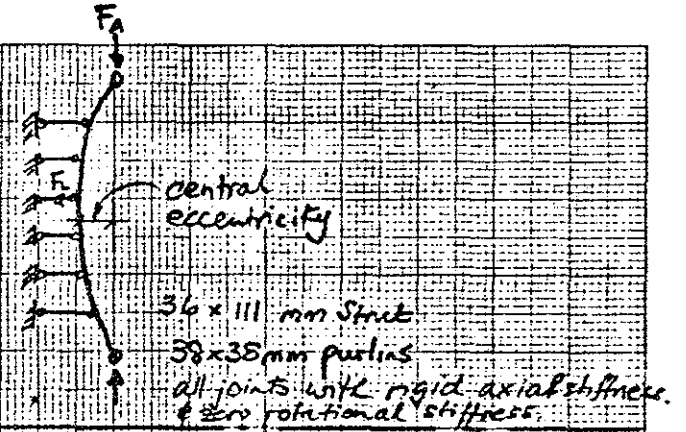 FA
central
eccentricity
36 x 111 mm Strut
38x35mm purlins
all joints with rigid axial stiffness.
& zero rotational stiffness.